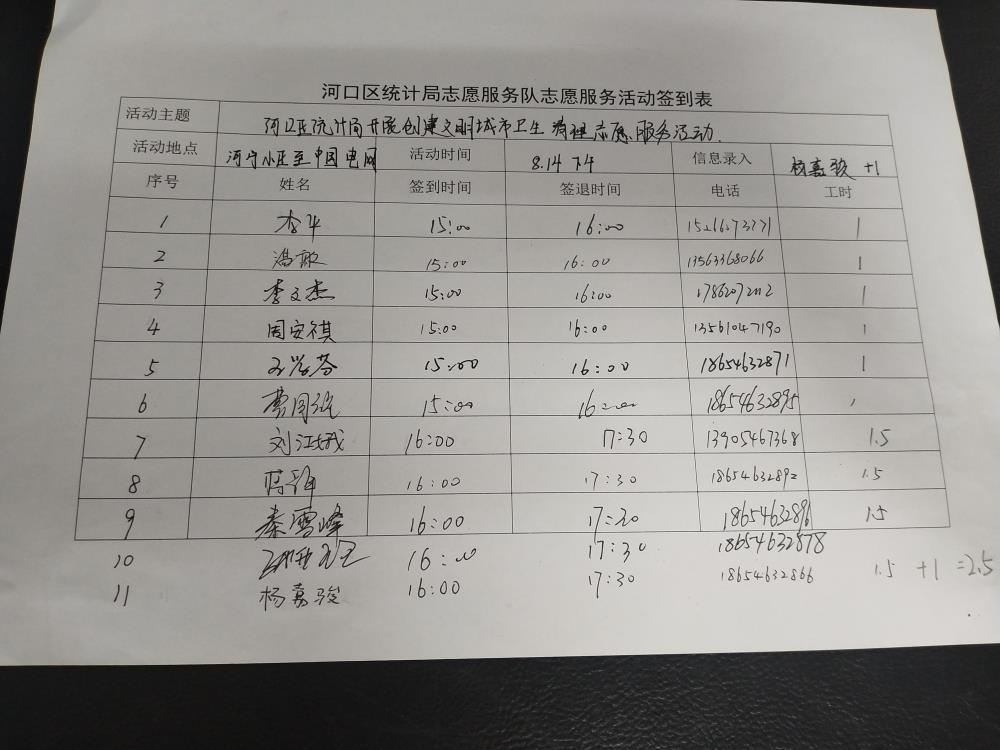 河口区统计局志愿服务队志愿服务活动签到表
活动主题 河口区统计局开展创建文明城市卫生清理志愿服务活动.
活动地点 河宁小区至中国电网 活动时间 8.14 下午 信息录入 杨嘉骏 +1
序号 姓名 签到时间 签退时间 电话 工时
1 李华 15:00 16:00 1
2 冯敏 15:00 16:00 13563368066 1
3 李文杰 15:00 16:00 1
4 周安祺 15:00 16:00 13561047190 1
5 15:00 16:00 18654632871 1
6 15:00 16:00 18654632895
7 刘江娥 16:00 17:30 13905467368 1.5
8 16:00 17:30 18654632892 1.5
9 秦雪峰 16:00 17:30 18654632896 1.5
10 16:00 17:30 18654632878
11 杨嘉骏 16:00 17:30 18654632866 1.5 +1 =2.5